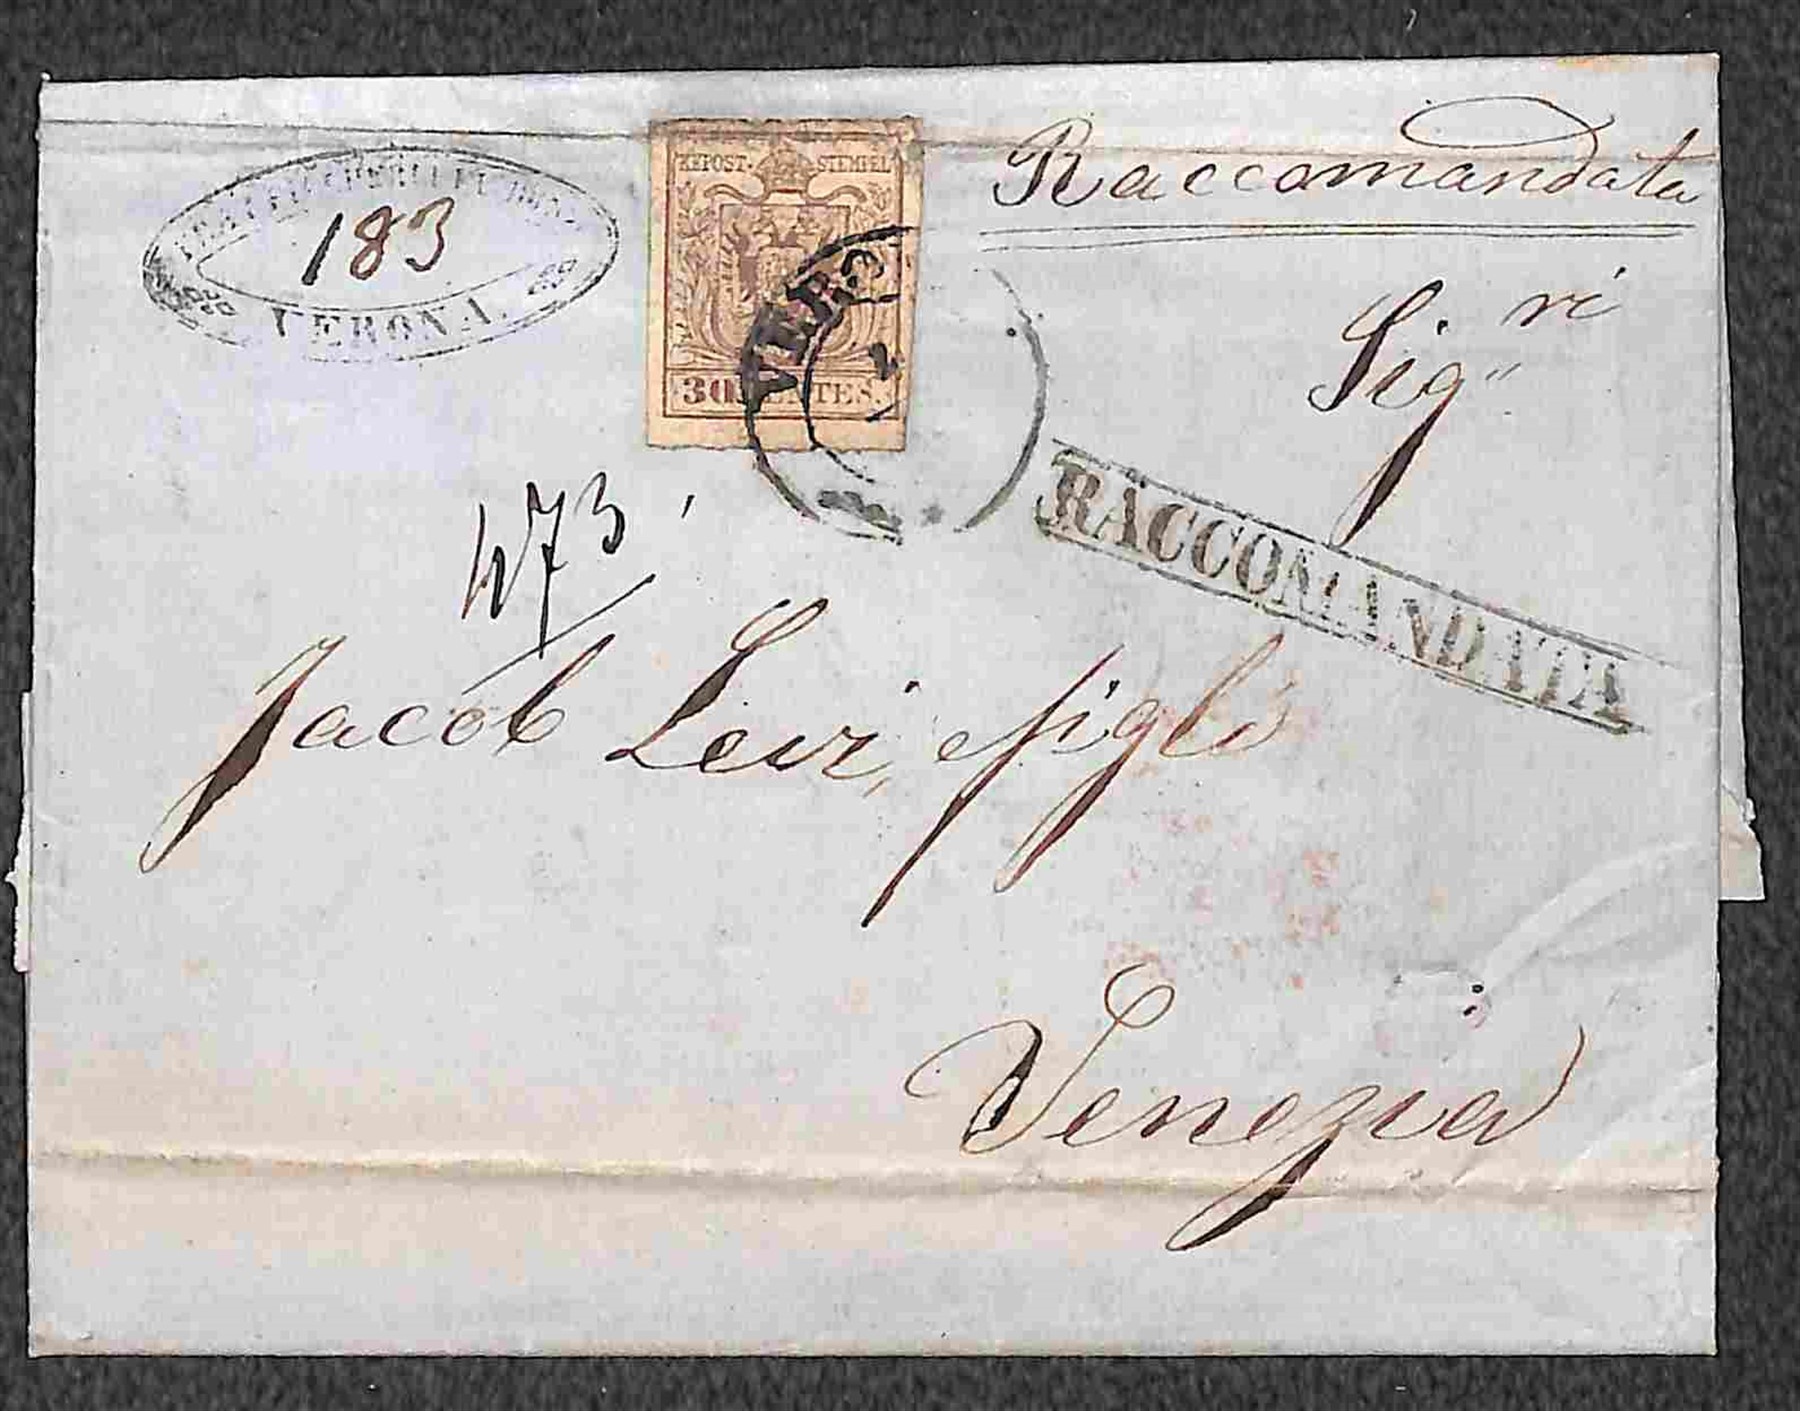 Raccomandata
183
VERONA.
KKPOST-STEMPEL
30 CENTES.
VERO
Sig.ri
RACCOMANDATA
473
Jacob Levi, e figli
Venezia